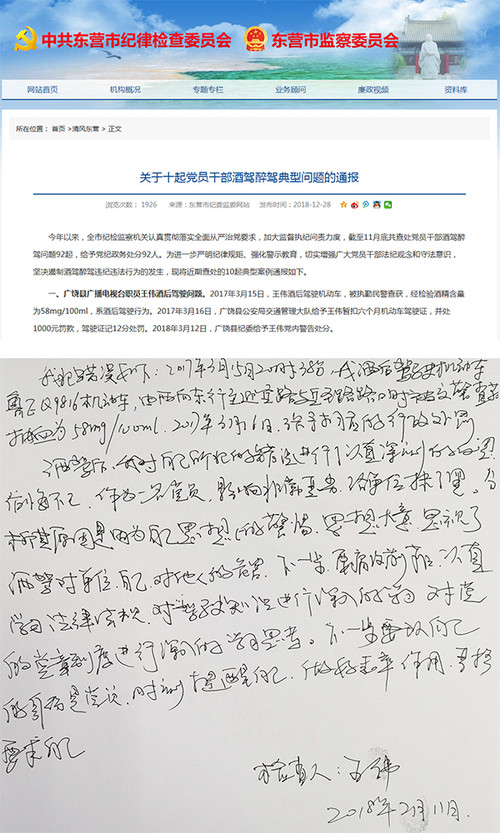 中共东营市纪律检查委员会 东营市监察委员会
网站首页 机构概况 专题专栏 业务顾问 廉政视频 资料库
所在位置： 首页 >清风东营 > 正文
关于十起党员干部酒驾醉驾典型问题的通报
浏览次数： 1926 来源：东营市纪委监委网站 发布时间：2018-12-28
今年以来，全市纪检监察机关认真贯彻落实全面从严治党要求，加大监督执纪问责力度，截至11月底共查处党员干部酒驾醉
驾问题92起，给予党纪政务处分92人。为进一步严明纪律规矩、强化警示教育，切实增强广大党员干部法纪观念和守法意识，
坚决遏制酒驾醉驾违纪违法行为的发生，现将近期查处的10起典型案例通报如下。
一、广饶县广播电视台职员王伟酒后驾驶问题。2017年3月15日，王伟酒后驾驶机动车，被执勤民警查获，经检验酒精含量
为58mg/100ml，系酒后驾驶行为。2017年3月16日，广饶县公安局交通管理大队给予王伟暂扣六个月机动车驾驶证，并处
1000元罚款，驾驶证记12分处罚。2018年3月12日，广饶县纪委给予王伟党内警告处分。
我犯错误如下：2017年3月15日20时38分，我酒后驾驶机动车
鲁EQ9816机动车，由西向东行至 路与 路路口时被交警查获
为58mg/100ml. 2017年3月16日, 的行政处罚
酒驾后，我对自己所犯的错误进行了认真深刻的反思
后悔不已，作为一名党员，影响非常恶劣，给单位抹了黑，分
析其原因是因为自己思想上的警惕，思想大意，忽视了
酒驾对单位、自己、对他人的危害。下一步，要痛改前非，认真
学习法律法规，对 知识进行深入的学习，对党
的党章制度进行深入的学习思考。下一步要以自己
的 是党员，时刻提醒自己，做好表率作用，严格
要求自己
检查人：王伟
2018年2月11日.